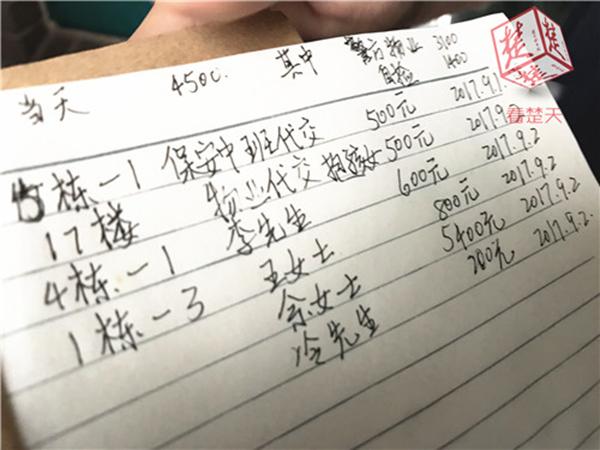 当天 4500. 其中 警方物业 3100
自捡 1400
5栋-1 保安中班代交 500元 2017.9.1
17楼 物业代交 500元 2017.9.2
4栋-1 李先生 600元 2017.9.2
1栋-3 王女士 800元 2017.9.2
余女士 5400元 2017.9.2
冷先生 200元 2017.9.2.
楚
看楚天